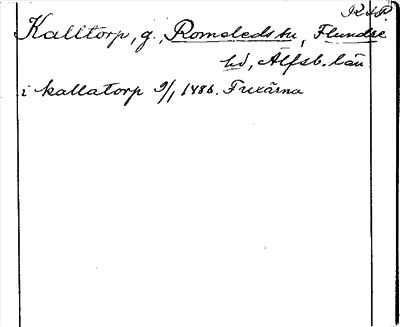 R S P.
Kalltorp, g., Romeleds sn, Flundre
hd, Älfsb. län
i kallatorp 9/1 1486. Frixärna